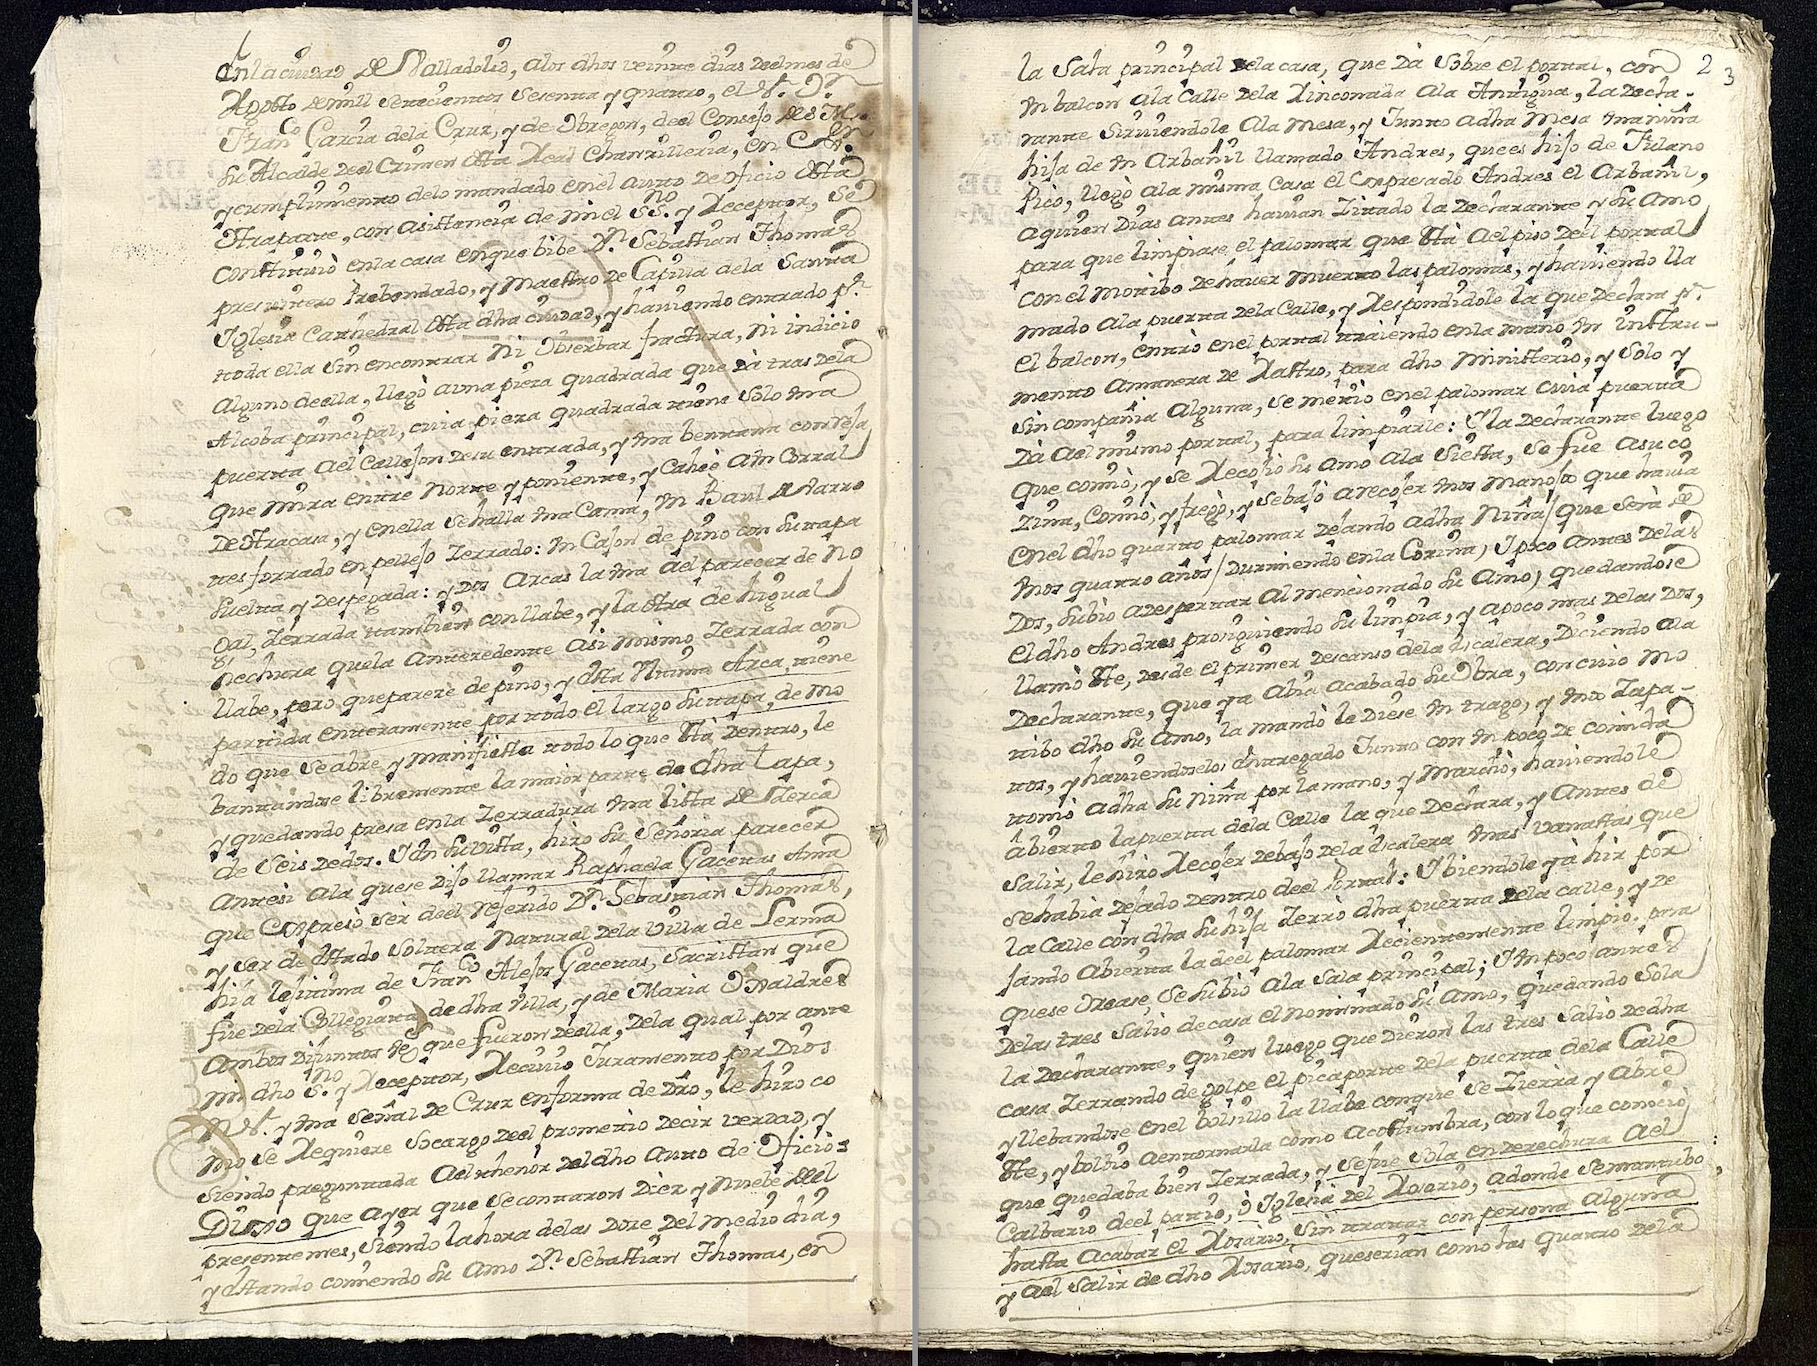 En la ciudad de Valladolid, a los dhos veinte dias del mes de
Agosto de mill setecientos sesenta y quatro, el Sr. Dn.
Franco Garcia de la Cruz, y de Obregon, del Consejo de S. M.
su Alcalde del Crimen esta Real Chanzilleria, en
y cumplimiento de lo mandado en el auto de oficio esta
otra parte, con asistencia de mi el SSno. y Rezeptor, se
constituió en la casa en que bibe Dn. Sebastian Thomas
presvitero Prebendado, y Maestro de Capilla de la Santa
Iglesia Cathedral esta dha ciudad, y haviendo entrado pr.
toda ella sin encontrar ni obserbar fractura, ni indicio
alguno de ella, llegò a una pieza quadrada que dà tras de la
Alcoba principal, cuia pieza quadrada tiene solo una
puerta a el callejon de su entrada, y una bentana con reja
que mira entre Norte y poniente, y cahè a un Corral
de otra casa, y en ella se halla una Cama, un Baul
tes forrado en pellejo zerrado: un Cajon de pino con su tapa
suelta y despegada: y dos Arcas la una al parecer de No
gal, zerrada tambien con llabe, y la otra de higual
hechura que la antezedente asi mismo zerrada con
llabe, pero que pareze de pino, y esta ultima Arca, tiene
partida enteramente por todo el largo su tapa, de mo
do que se abre y manifiesta todo lo que està dentro, le
bantandose libremente la maior parte de dha tapa,
y quedando presa en la zerradura una lista de zerca
de seis dedos. Y en su vista, hizo su Señoria parecer
ante si a la que se dijo llamar Raphaela Gacetas Ama
que expresò ser del referido Dn. Sebastian Thomas,
y ser de estado soltera natural de la villa de Lerma
hija lejitima de Franco Alejos Gacetas, Sacristan que
fue de la Collegiata de dha villa, y de Maria
ambos difuntos que fueron de ella, de la qual por ante
mi dho SSno. y Rezeptor, rezivio juramento por Dios
nro Sr. y una señal de Cruz en forma de dro, le hizo co
mo se requiere so cargo del prometio decir verdad, y
siendo preguntada a el thenor del dho auto de oficio:
Dixo que ayer que se contaron diez y nuebe del
presente mes, siendo la hora de las doze del medio dia,
y estando comiendo su amo Dn. Sebastian Thomas, en
2 3
la Sala principal de la casa, que dà sobre el portal, con
un balcon a la Calle de la Rinconada a la Antigua, la Decla-
rante sirviendole a la mesa, y junto a dha mesa una niña
hija de un Arbañil llamado Andres, que es hijo de Fulano
Picò, llegò a la misma casa el expresado Andres el Arbañil,
a quien dias antes havian zitado la Declarante y su amo
para que limpiase el palomar que està a el piso del portal
con el motibo de haver muerto las palomas, y haviendo lla
mado a la puerta de la Calle, y respondidole la que Declara pr.
el balcon, entrò en el portal traiendo en la mano un instru-
mento a manera de Rastro, para dho ministerio, y solo y
sin compañia alguna, se metiò en el palomar cuia puerta
dà a el mismo portal, para limpiarle: Y la Declarante luego
que comiò, y se recojiò su Amo a la siesta, se fue a su co
zina, comiò, y fregò, y se bajò a recojer unos manojos que havia
en el dho quarto palomar dejando a dha Niña / que serà de
unos quatro años / durmiendo en la Cozina, y poco antes de las
dos, subio a despertar al mencionado su Amo, quedandose
el dho Andres prosiguiendo su limpia, y a poco mas de las dos,
llamò este, desde el primer descanso de la escalera, diciendo a la
Declarante, que ya abia acabado su obra, con cuio mo
tibo dho su amo, la mandò le diese un trago, y unos zapa-
tos, y haviendoselos entregado junto con un poco de comida
tomò a dha su niña por la mano, y marchò, haviendole
abierto la puerta de la Calle la que Declara, y antes de
salir, le hizo recojer debajo de la escalera unas banastas que
se habia dejado dentro del Portal: Y biendole yà hir por
la Calle con dha su hija zerrò dha puerta de la calle, y de
jando abierta la del palomar recientemente limpio, para
que se orease, se subiò a la sala principal; y un poco antes
de las tres saliò de casa el nominado su amo, quedando sola
la Declarante, quien luego que dieron las tres saliò de dha
casa zerrando de golpe el picaporte de la puerta de la Calle
y llebandose en el bolsillo la llabe con que se zierra y abre
este, y bolbiò a entornarla como acostumbra, con lo que conociò
que quedaba bien zerrada, y se fue sola en derechura a el
Calbario del patio, ò Iglesia del Rosario, adonde se mantubo
hasta acabar el Rosario, sin tratar con persona alguna
y a el salir de dho Rosario, que serian como las quatro de la